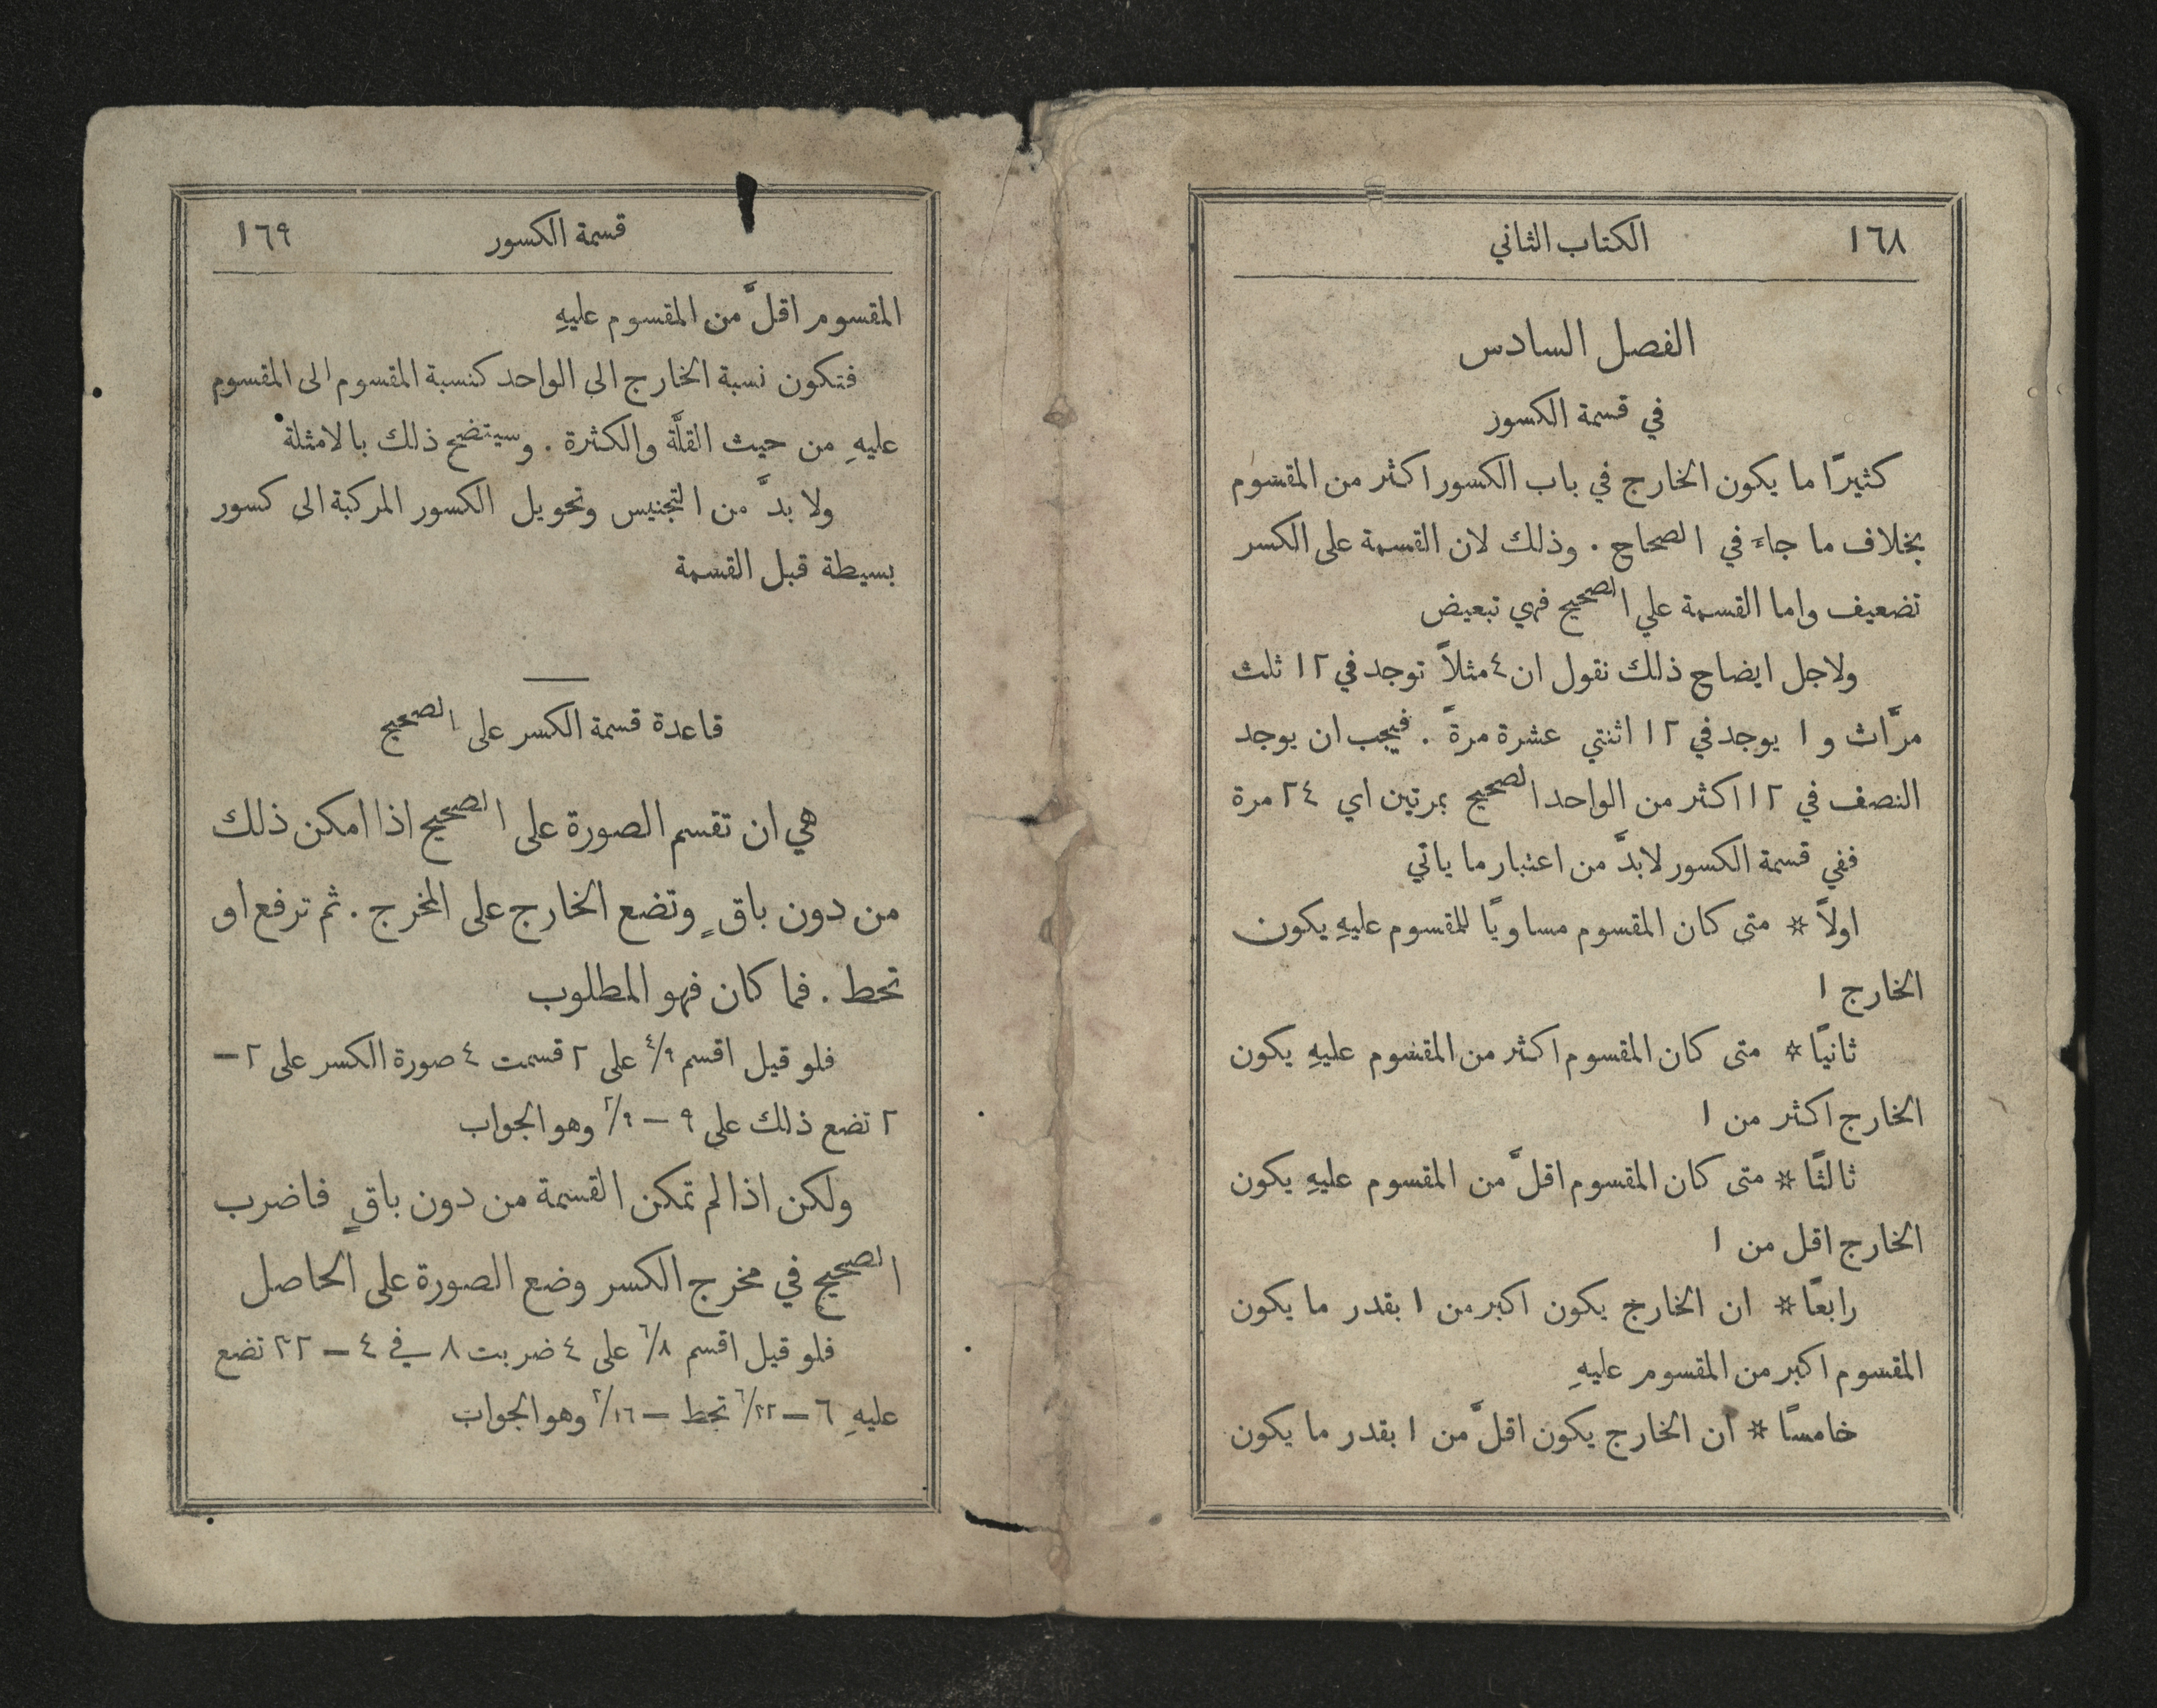 ١٦٨ الكتاب الثاني
الفصل السادس
في قسمة الكسور
كثيرًا ما يكون الخارج في باب الكسور اكثر من المقسوم
بخلاف ما جاءَ في الصحاح . وذلك لان القسمة على الكسر
تضعيف واما القسمة علي الصحيح فهي تبعيض
ولاجل ايضاح ذلك نقول ان ٤ مثلاً توجد في ١٢ ثلث
مرَّات و ١ يوجد في ١٢ اثنتي عشرة مرةً . فيجب ان يوجد
النصف في ١٢ اكثر من الواحد الصحيح بمرتين اي ٢٤ مرة
ففي قسمة الكسور لابدَّ من اعتبار ما ياتي
اولاً * متى كان المقسوم مساويًا للمقسوم عليهِ يكون
الخارج ١
ثانيًا * متى كان المقسوم اكثر من المقسوم عليهِ يكون
الخارج اكثر من ١
ثالثًا * متى كان المقسوم اقلَّ من المقسوم عليهِ يكون
الخارج اقل من ١
رابعًا * ان الخارج يكون اكبر من ١ بقدر ما يكون
المقسوم اكبر من المقسوم عليهِ
خامسًا * ان الخارج يكون اقلَّ من ١ بقدر ما يكون
قسمة الكسور ١٦٩
المقسوم اقلَّ من المقسوم عليهِ
فتكون نسبة الخارج الى الواحد كنسبة المقسوم الى المقسوم
عليهِ من حيث القلَّة والكثرة . وسيتضح ذلك بالامثلة
ولا بدَّ من التجنيس وتحويل الكسور المركبة الى كسور
بسيطة قبل القسمة
قاعدة قسمة الكسر على الصحيح
هي ان تقسم الصورة على الصحيح اذا امكن ذلك
من دون باقٍ وتضع الخارج على المخرج . ثم ترفع او
تحط . فما كان فهو المطلوب
فلو قيل اقسم ٤/٩ على ٢ قسمت ٤ صورة الكسر على ٢ —
٢ تضع ذلك على ٩ — ٢/٩ وهو الجواب
ولكن اذا لم تمكن القسمة من دون باقٍ فاضرب
الصحيح في مخرج الكسر وضع الصورة على الحاصل
فلو قيل اقسم ٦/٨ على ٤ ضربت ٨ في ٤ — ٣٢ تضع
عليهِ ٦ — ٦/٣٢ تحط — ٣/١٦ وهو الجواب